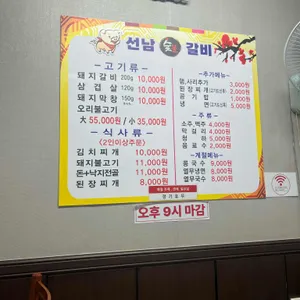 선남 갈비
-고기류-
돼지갈비 200g 10,000원
삼겹살 120g 10,000원
돼지막창 150g 10,000원
오리불고기
大 55,000원 / 小 35,000원
-식사류-
(2인이상주문)
김치찌개 10,000원
돼지불고기 11,000원
돈+낙지전골 11,000원
된장찌개 8,000원
-추가메뉴-
3,000원
된장찌개 2,000원
공기밥 1,000원
냉면 5,000원
-주류-
소주,맥주 4,000원
막걸리 4,000원
청하 5,000원
음료수 2,000원
-계절메뉴-
콩국수 9,000원
열무냉면 8,000원
열무국수 8,000원
오후 9시 마감